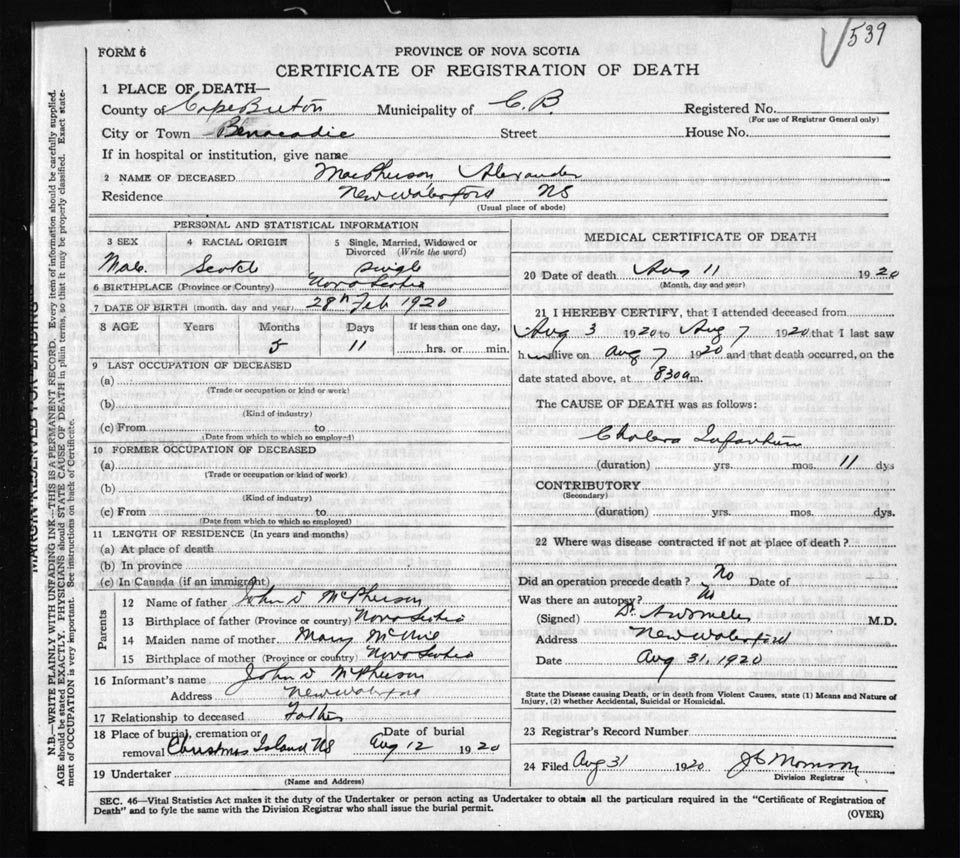 539
FORM 6
PROVINCE OF NOVA SCOTIA
CERTIFICATE OF REGISTRATION OF DEATH
1 PLACE OF DEATH—
County of Cape Breton Municipality of C. B. Registered No.
(For use of Registrar General only)
City or Town Benacadie Street House No.
If in hospital or institution, give name
2 NAME OF DECEASED MacPherson Alexander
Residence New Waterford NS
(Usual place of abode)
PERSONAL AND STATISTICAL INFORMATION
3 SEX 4 RACIAL ORIGIN 5 Single, Married, Widowed or
Divorced (Write the word)
Male. Scotch single
6 BIRTHPLACE (Province or Country) Nova Scotia
7 DATE OF BIRTH (month, day and year) 28th Feb 1920
8 AGE Years Months Days If less than one day,
5 11 hrs. or min.
9 LAST OCCUPATION OF DECEASED
(a)
(Trade or occupation or kind or work)
(b)
(Kind of industry)
(c) From to
(Date from which to which so employed)
10 FORMER OCCUPATION OF DECEASED
(a)
(Trade or occupation or kind of work)
(b)
(Kind of industry)
(c) From to
(Date from which to which so employed)
11 LENGTH OF RESIDENCE (In years and months)
(a) At place of death
(b) In province
(c) In Canada (if an immigrant)
Parents
12 Name of father John D McPherson
13 Birthplace of father (Province or country) Nova Scotia
14 Maiden name of mother Mary
15 Birthplace of mother (Province or country) Nova Scotia
16 Informant's name John D McPherson
Address New Waterford
17 Relationship to deceased Father
18 Place of burial, cremation or Date of burial
removal Christmas Island NS Aug 12 1920
19 Undertaker
(Name and Address)
MEDICAL CERTIFICATE OF DEATH
20 Date of death Aug 11 1920
(Month, day and year)
21 I HEREBY CERTIFY, that I attended deceased from
Aug 3 1920 to Aug 7 1920 that I last saw
h im alive on Aug 7 1920 and that death occurred, on the
date stated above, at 830a m.
The CAUSE OF DEATH was as follows:
Cholera Infantum
(duration) yrs. mos. 11 dys
CONTRIBUTORY
(Secondary)
(duration) yrs. mos. dys.
22 Where was disease contracted if not at place of death?
Did an operation precede death? No Date of
Was there an autopsy? No
(Signed) Dr. M.D.
Address New Waterford
Date Aug 31, 1920
State the Disease causing Death, or in death from Violent Causes, state (1) Means and Nature of
Injury, (2) whether Accidental, Suicidal or Homicidal.
23 Registrar's Record Number
24 Filed Aug 31 1920
Division Registrar
SEC. 46—Vital Statistics Act makes it the duty of the Undertaker or person acting as Undertaker to obtain all the particulars required in the "Certificate of Registration of
Death" and to fyle the same with the Division Registrar who shall issue the burial permit.
(OVER)
MARGIN RESERVED FOR BINDING
N.B.—WRITE PLAINLY WITH UNFADING INK—THIS IS A PERMANENT RECORD. Every item of information should be carefully supplied.
AGE should be stated EXACTLY. PHYSICIANS should STATE CAUSE OF DEATH in plain terms, so that it may be properly classified. Exact state-
ment of OCCUPATION is very important. See instructions on back of Certificate.